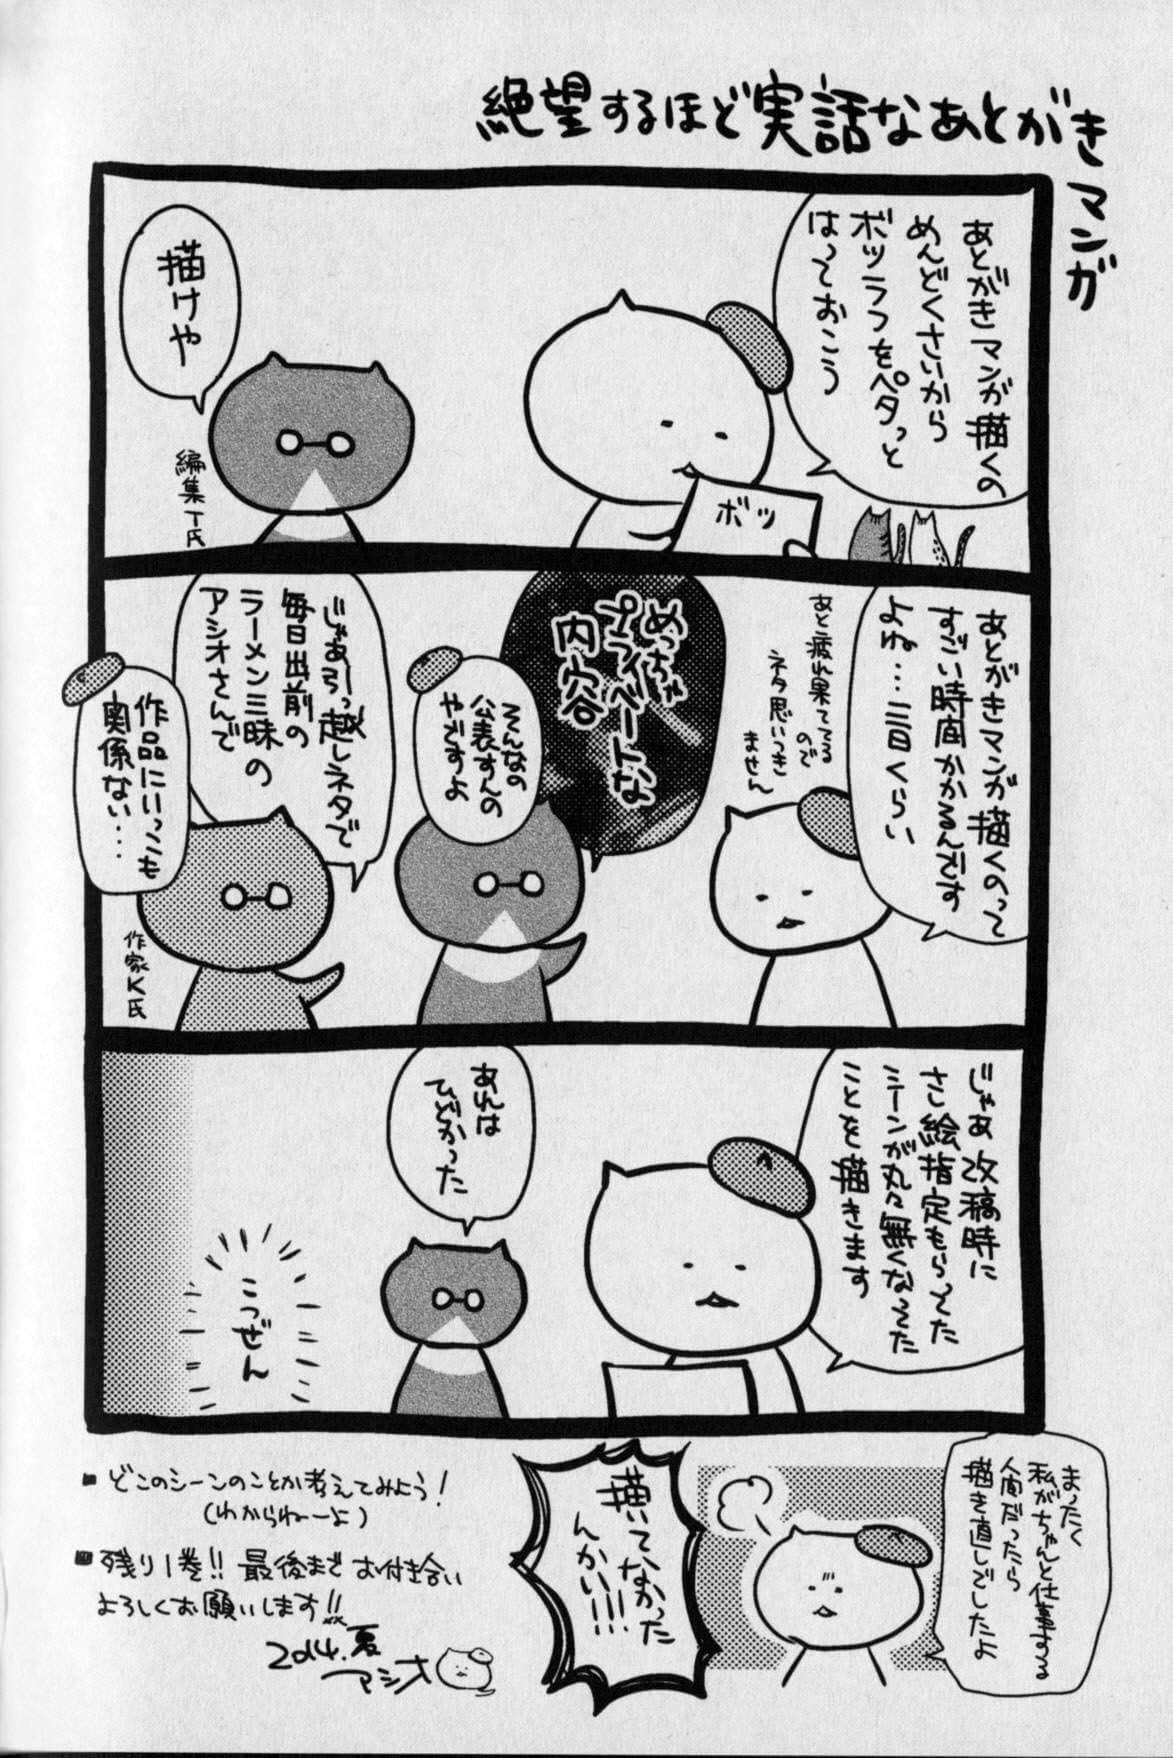 絶望するほど実話なあとがき
マンガ
あとがきマンガ描くの
めんどくさいから
ボツラフをペタっと
はっておこう
ボツ
描けや
編集T氏
あとがきマンガ描くのって
すごい時間かかるんです
よね…三日くらい
あと疲れ果ててる
ので
ネタ思いつき
ません
めっちゃ
プライベートな
内容
そんなの
公表すんの
やですよ
じゃあ引っ越しネタで
毎日出前の
ラーメン三昧の
アシオさんで
作品にいっこも
関係ない…
作家K氏
じゃあ改稿時に
さし絵指定もらってた
シーンが丸々無くなってた
ことを描きます
あれは
ひどかった
こつぜん
まったく
私がちゃんと仕事する
人間だったら
描き直しでしたよ
描いてなかった
んかい!!!
■どこのシーンのことか考えてみよう!
(わからねーよ)
■残り1巻!! 最後までお付き合い
よろしくお願いします!!
2014.夏
アシオ